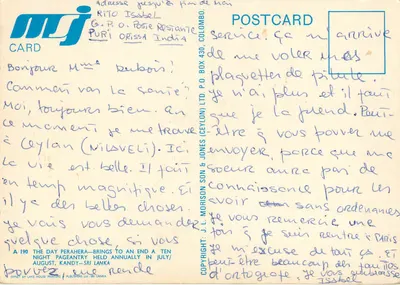 adresse jusqu'à fin de mai
RITO Isabel
G.P.O. Poste Restante
PURI ORISSA India
msj
CARD
Bonjour Mme Dubois!
Comment va la santé"
Moi, toujours bien. En
ce moment je me trouve
à Ceylan (NILAVELI). Ici,
la vie est belle. Il fait
un temp magnifique. Et
il y a des belles choses
je vais vous demander
quelque chose, si vous
pouvez me rende
A 190 THE DAY PERAHERA—BRINGS TO AN END A TEN
NIGHT PAGEANTRY HELD ANNUALLY IN JULY/
AUGUST, KANDY—SRI LANKA
COPYRIGHT J. L. MORISON SON & JONES (CEYLON) LTD P.O. BOX 430, COLOMBO.
POSTCARD
service, ça m'arrive
de me voler mes
plaquettes de pilule.
je n'ai, plus et il faut
que je la prend. Peut-
être à vous pouvez me
envoyer, porce que ma
soeur aura pas de
connaissance pour les
avoir sans ordenannes
je vous remercie une
fois je suis rentre à Paris
je m'excuse du tan ça, et
peut être beaucoup des fautes
d'ortografe, je vous
Isabel